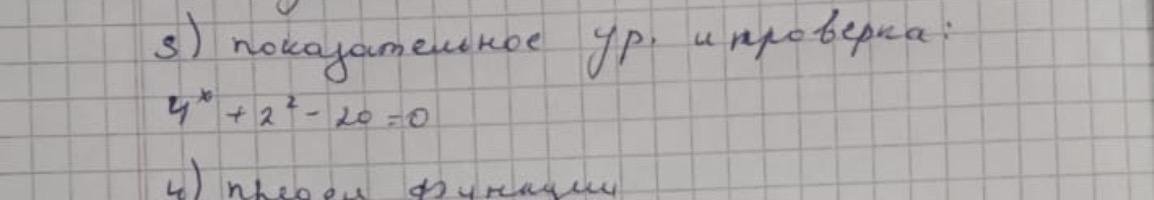 3) показательное ур. и проверка:
4ˣ + 2² - 20 = 0
4) предел функции